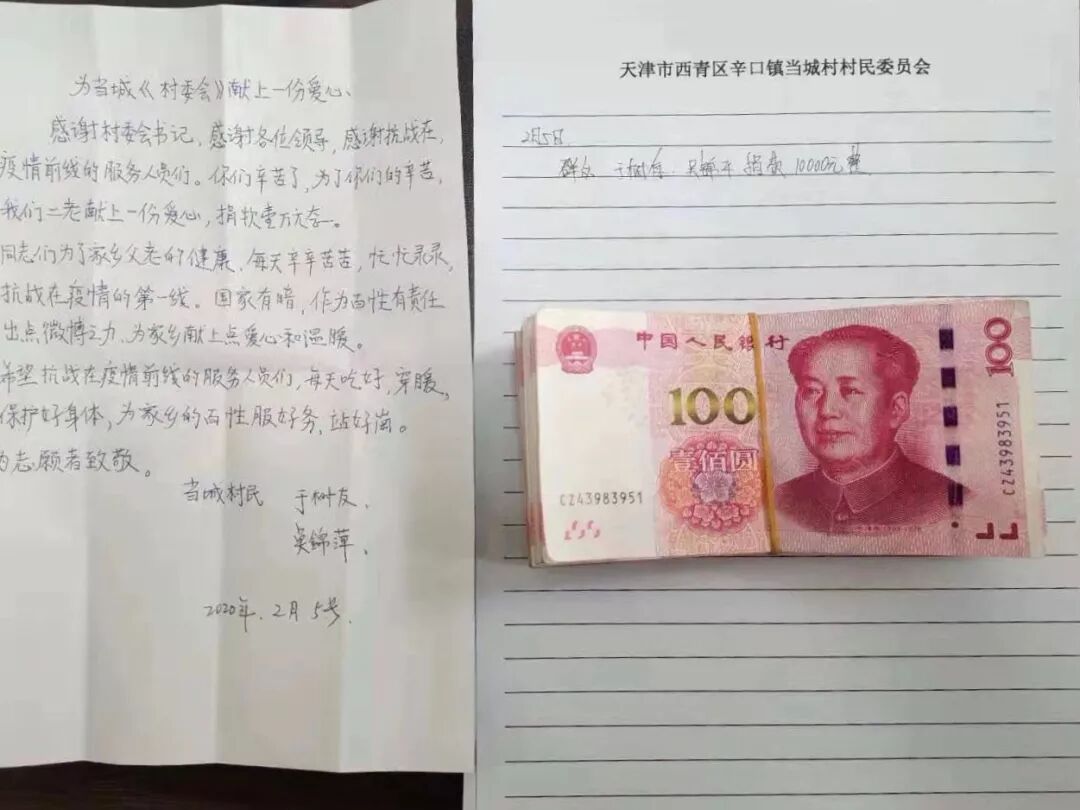 为当城《村委会》献上一份爱心、
感谢村委会书记，感谢各位领导，感谢抗战在，
疫情前线的服务人员们。你们辛苦了，为了你们的辛苦，
我们二老献上一份爱心，捐款壹万元整。
同志们为了家乡父老的健康、每天辛辛苦苦，忙忙录录，
抗战在疫情的第一线。国家有暗，作为百性有责任
出点微博之力、为家乡献上点爱心和温暖。
希望抗战在疫情前线的服务人员们，每天吃好，穿暖，
保护好身体，为家乡的百性服好务、站好岗。
为志愿者致敬。
当城村民 于树友、
吴錦萍、
2020年．2月5号．
天津市西青区辛口镇当城村村民委员会
2月5日
群众 于树有 吴锦平 捐款 10000元整
中国人民银行
100
壹佰圆
CZ43983951
100
CZ43983951